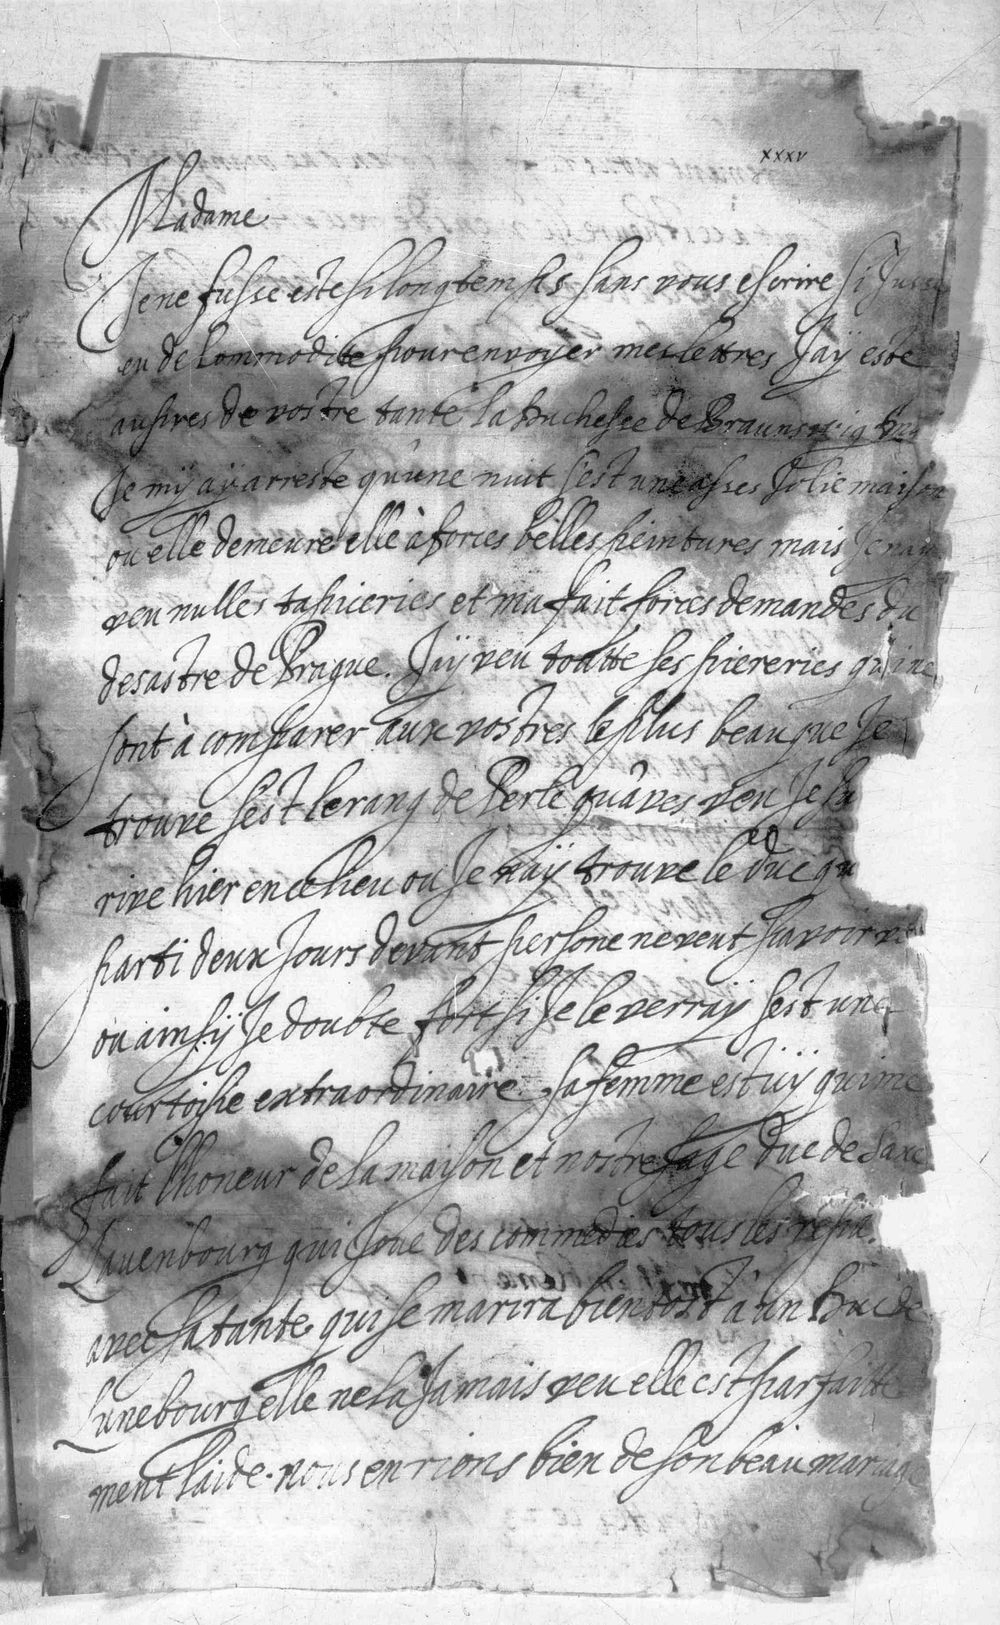 xxxv
Madame
Je ne fusse este si longtemps sans vous escrire si Jusse
eu de commodite pour envoyer mes lettres Jaÿ este
aupres de vostre tante la Duchesse de Braunswig
Je mÿ aÿ arreste qu'une nuit s'est une asses Jolie maison
ou elle demeure elle à forces belles peintures mais Je naÿ
veu nulles tapiceries et ma fait forces demandes du
desastre de Prague. Jaÿ veu toutte ses piereries qui ne
sont à comparer aux vostres le plus beau que Je
trouve s'est le rang de Perle qu'aves veu Je
rive hier en ce lieu ou Je naÿ trouve le Duc qu
parti deux Jours devant persone ne veut savoir
ou ainsÿ Je doubte fort si Je le verraÿ s'est une
courtoisie extraordinaire. sa femme est iÿ qui me
fait l'honeur de la maison et nostre sage Duc de Saxe
Lauenbourg qui Joue des commedies tous les
avec sa tante, qui se marira bientost à un Duc de
Lunebourg elle ne la Jamais veu elle est parfaitte
ment laide. nous en rions bien de son beau mariage